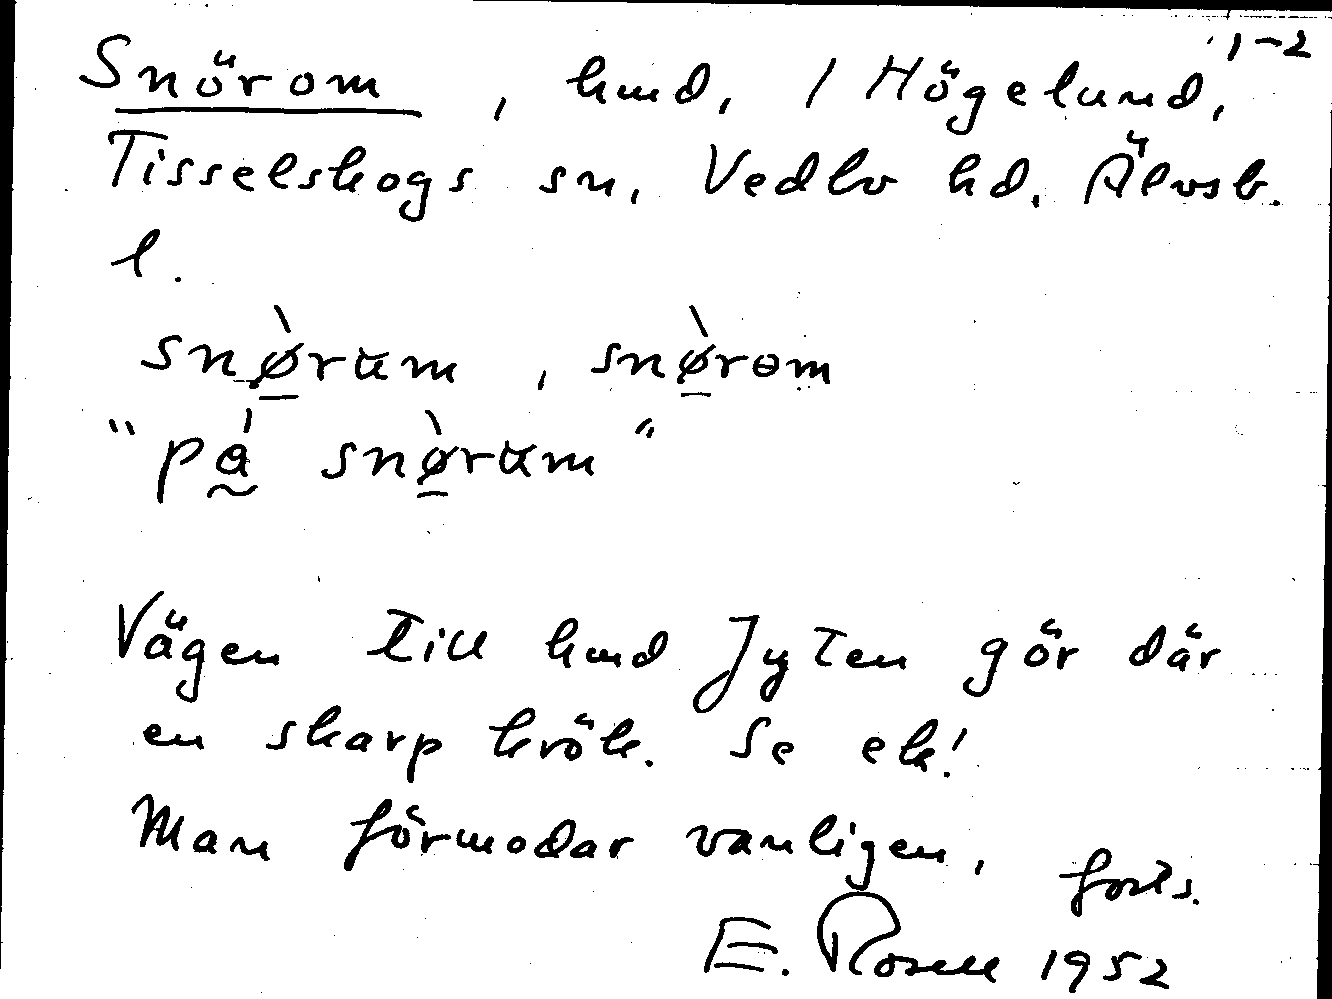 1-2
Snörom, hmd, 1 Högelund,
Tisselskogs sn, Vedbo hd. Älvsb.
l.
snø̲̀rum, snø̲̀rɵm
"pǻ̰ snø̲̀rum"
Vägen till hmd Jyten gör där
en skarp krök. Se ek!
Man förmodar vanligen, forts.
E. Rosell 1952